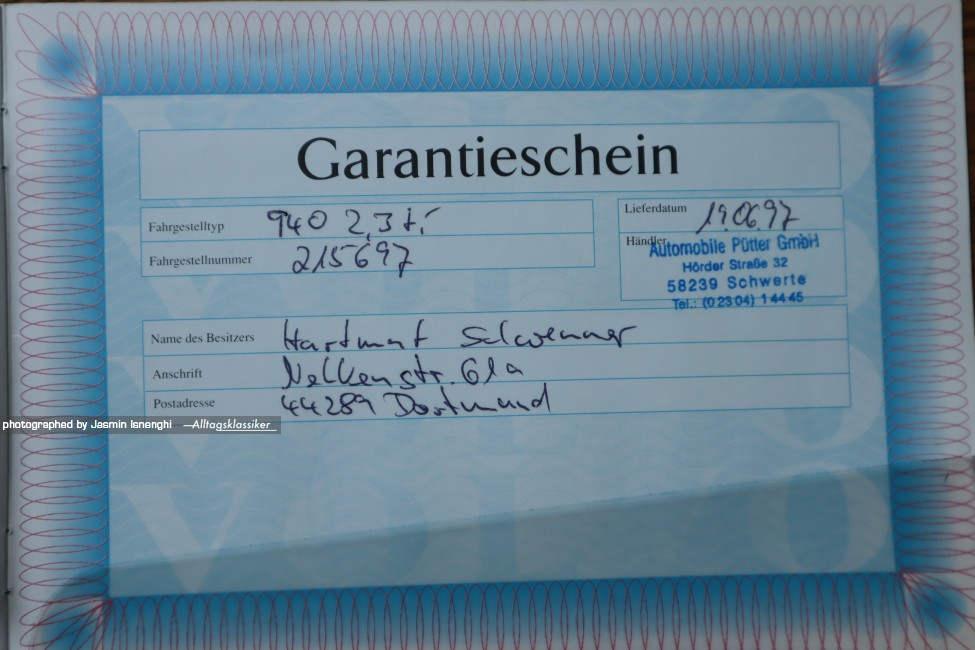 Garantieschein
Fahrgestelltyp 940 2,3 t.
Fahrgestellnummer 215697
Lieferdatum 19.06.97
Händler
Automobile Pütter GmbH
Hörder Straße 32
58239 Schwerte
Tel.: (0 23 04) 1 44 45
Name des Besitzers Hartmut
Anschrift Nelkenstr. 61a
Postadresse 44289 Dortmund
photographed by Jasmin Isnenghi —Alltagsklassiker_
VOLVO